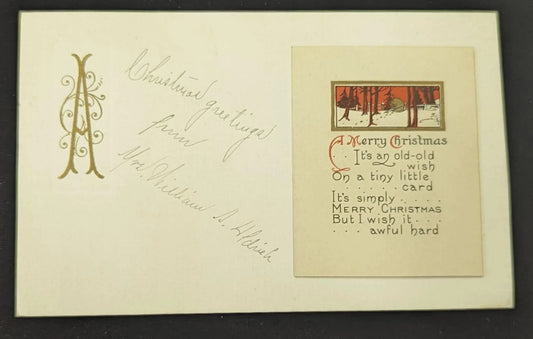 A
Christmas greetings
from
Mrs. William A. Aldrich
A Merry Christmas
It's an old-old
wish
On a tiny little
. . . . . . card
It's simply . . . .
MERRY CHRISTMAS
But I wish it . . .
. . . . awful hard